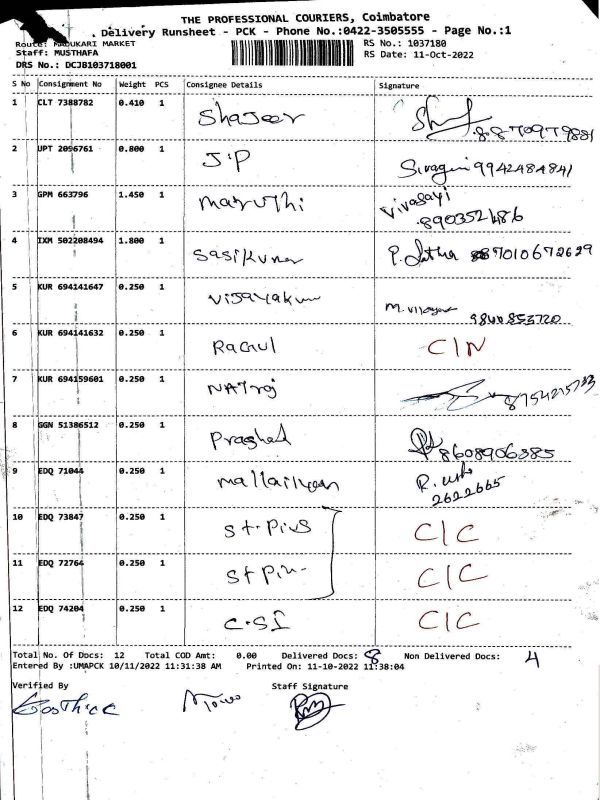 THE PROFESSIONAL COURIERS, Coimbatore
Delivery Runsheet - PCK - Phone No.:0422-3505555 - Page No.:1
Route: MADUKARI MARKET
RS No.: 1037180
Staff: MUSTHAFA
RS Date: 11-Oct-2022
DRS No.: DCJB103718001
S No Consignment No Weight PCS Consignee Details Signature
1 CLT 7388782 0.410 1 Shajeer
2 UPT 2096761 0.800 1 J.P Sivagiri 9942484841
3 GPM 663796 1.450 1 maruthi Vivasayi
8903521486
4 IXM 502208494 1.800 1 Sasikumar P. Latha 87010672629
5 KUR 694141647 0.250 1 Vijayakum M. Vijay
9840853720
6 KUR 694141632 0.250 1 Ragul C/N
7 KUR 694159601 0.250 1 NATroj 8754215733
8 GGN 51386512 0.250 1 8608906385
9 EDQ 71044 0.250 1 R. usha
2622665
10 EDQ 73847 0.250 1 St. Pius C/C
11 EDQ 72764 0.250 1 St Piu C/C
12 EDQ 74204 0.250 1 C.SI C/C
Total No. Of Docs: 12 Total COD Amt: 0.00 Delivered Docs: 8 Non Delivered Docs: 4
Entered By :UMAPCK 10/11/2022 11:31:38 AM Printed On: 11-10-2022 11:38:04
Verified By Staff Signature